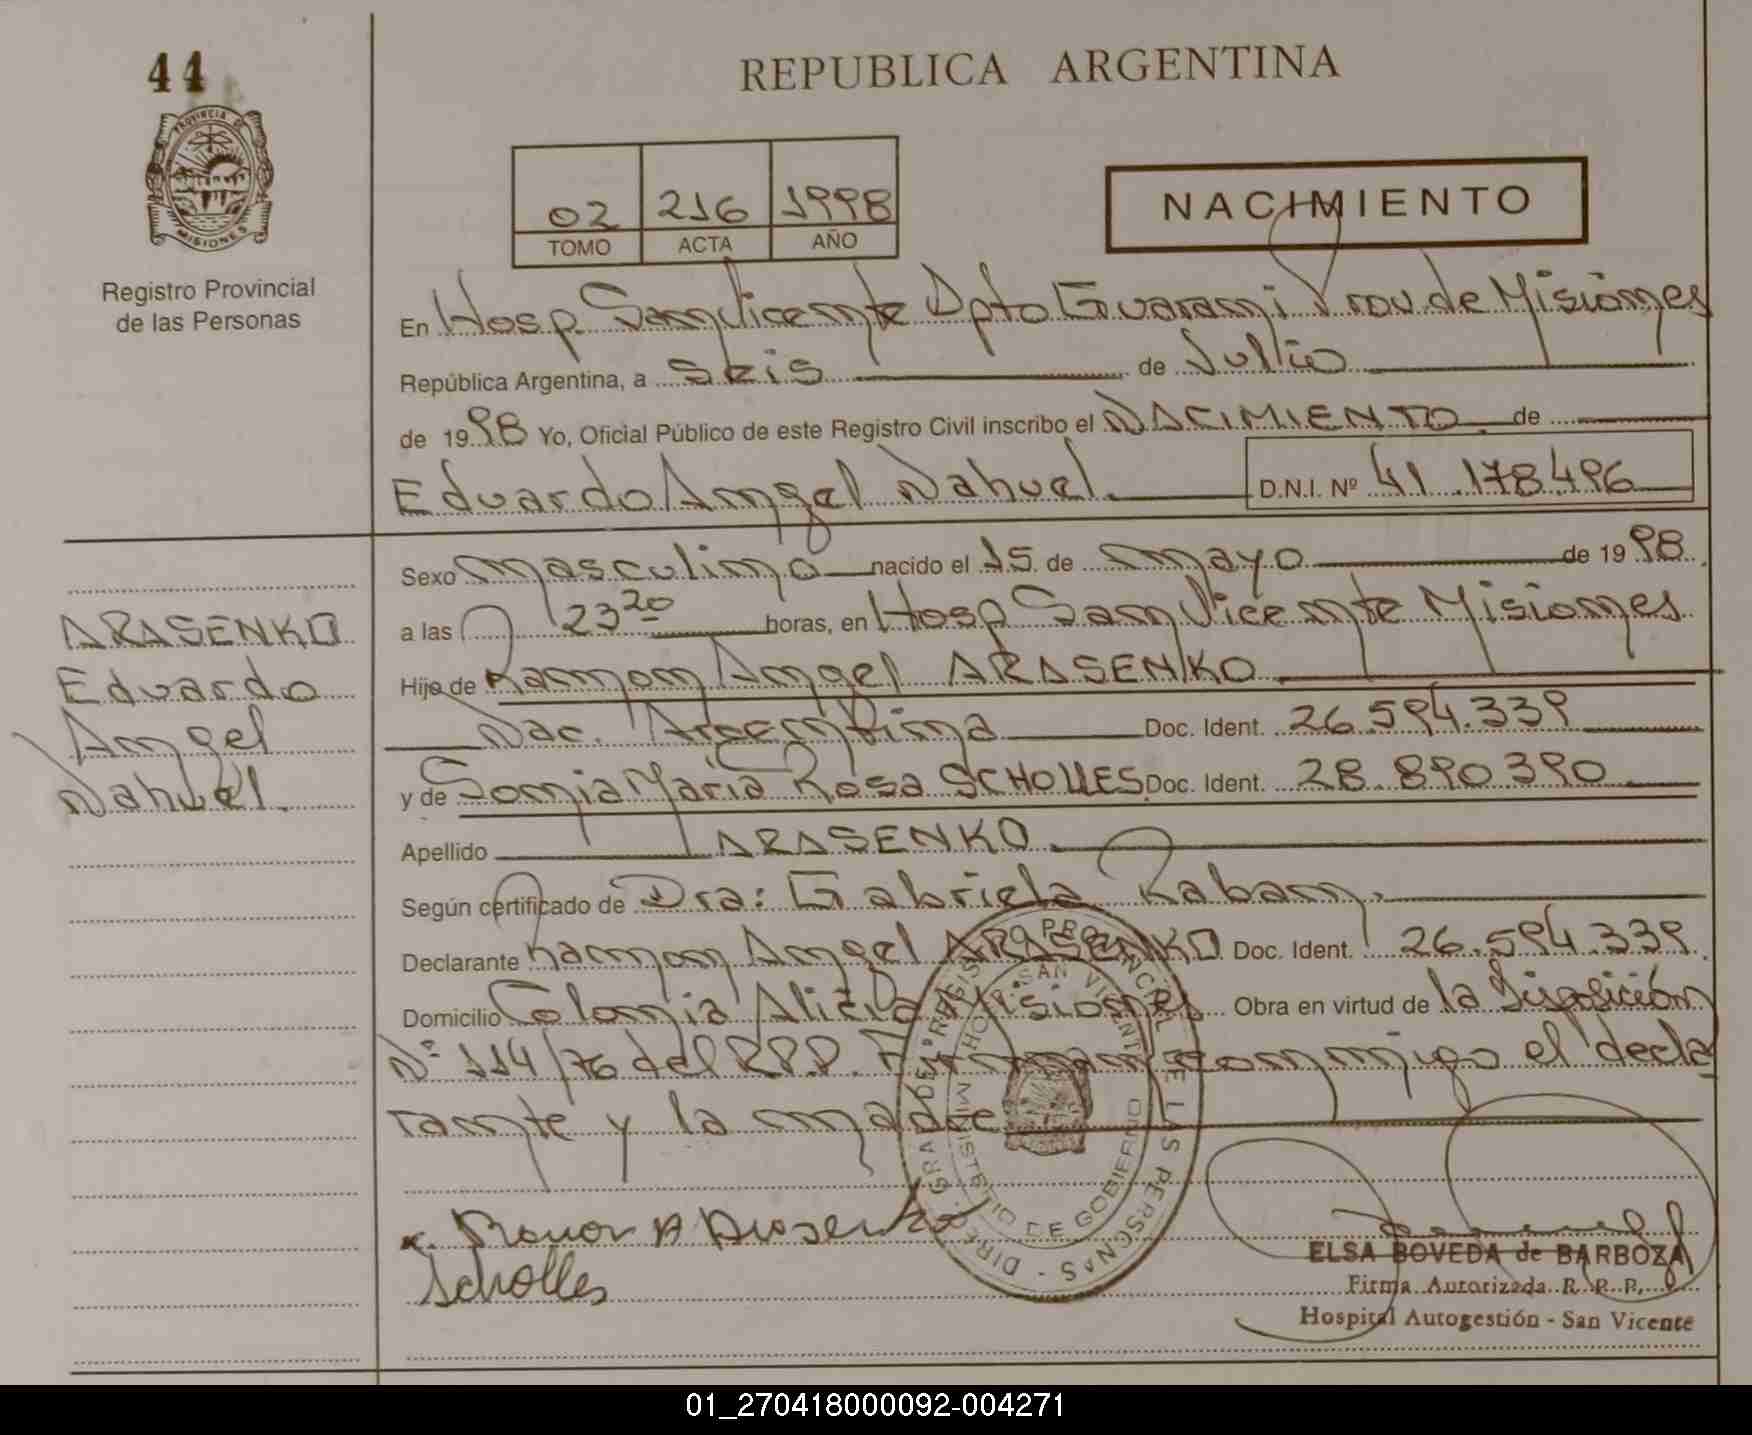 44
PROVINCIA DE
MISIONES
Registro Provincial
de las Personas
REPUBLICA ARGENTINA
02 216 1998
TOMO ACTA AÑO
NACIMIENTO
En Hosp. San Vicente Dpto Guarani Prov. de Misiones
República Argentina, a seis de Julio
de 1998 Yo, Oficial Público de este Registro Civil inscribo el NACIMIENTO de
Eduardo Angel Nahuel. D.N.I. Nº 41.178.496
ARASENKO
Eduardo
Angel
Nahuel.
Sexo masculino nacido el 15 de mayo de 1998.
a las 23 20 horas, en Hosp San Vicente Misiones
Hijo de Ramon Angel ARASENKO
Nac. Argentina Doc. Ident. 26.594.339
y de Sonia Maria Rosa SCHOLLES Doc. Ident. 28.890.390
Apellido ARASENKO
Según certificado de Dra: Gabriela Raban.
Declarante Ramon Angel ARASENKO Doc. Ident. 26.594.339.
Domicilio Colonia Alicia Misiones Obra en virtud de la Disposición
Nº 114/76 del R.P.P. Firman conmigo el decla
rante y la madre
DIRE. GRAL. DEL REGISTRO PROVINCIAL DE LAS PERSONAS -
HOSP. SAN VICENTE
MINISTERIO DE GOBIERNO
Ramon A Arasenko
Scholles
ELSA BOVEDA de BARBOZA
Firma Autorizada R. P. P.
Hospital Autogestión - San Vicente
01_270418000092-004271